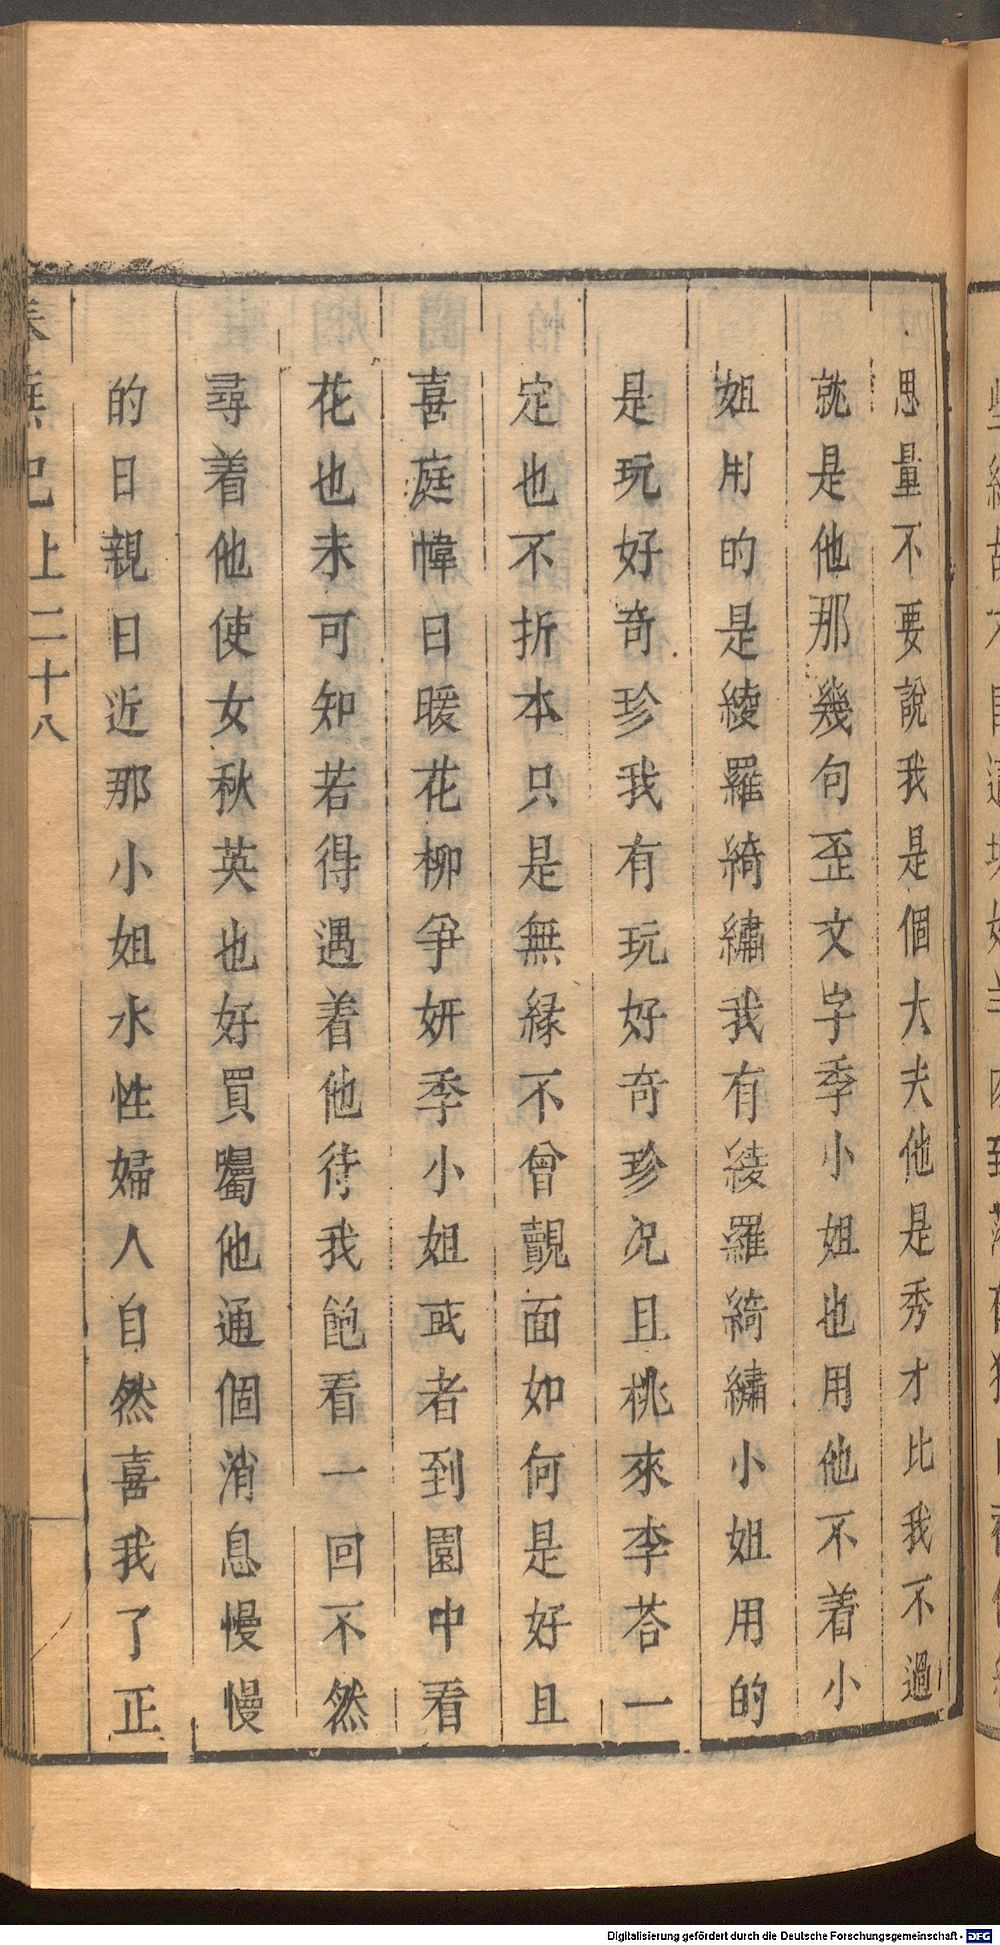 思量不要說我是個大夫他是秀才比我不過
就是他那幾句歪文字季小姐也用他不着小
姐用的是綾羅綺繡我有綾羅綺繡小姐用的
是玩好奇珍我有玩好奇珍况且桃來李荅一
定也不折本只是無緣不曾覿面如何是好且
喜庭幃日暖花柳爭妍季小姐或者到園中看
花也未可知若得遇着他待我飽看一回不然
尋着他使女秋英也好買囑他通個消息慢慢
的日親日近那小姐水性婦人自然喜我了正
春蕪記上二十八
Digitalisierung gefördert durch die Deutsche Forschungsgemeinschaft - DFG